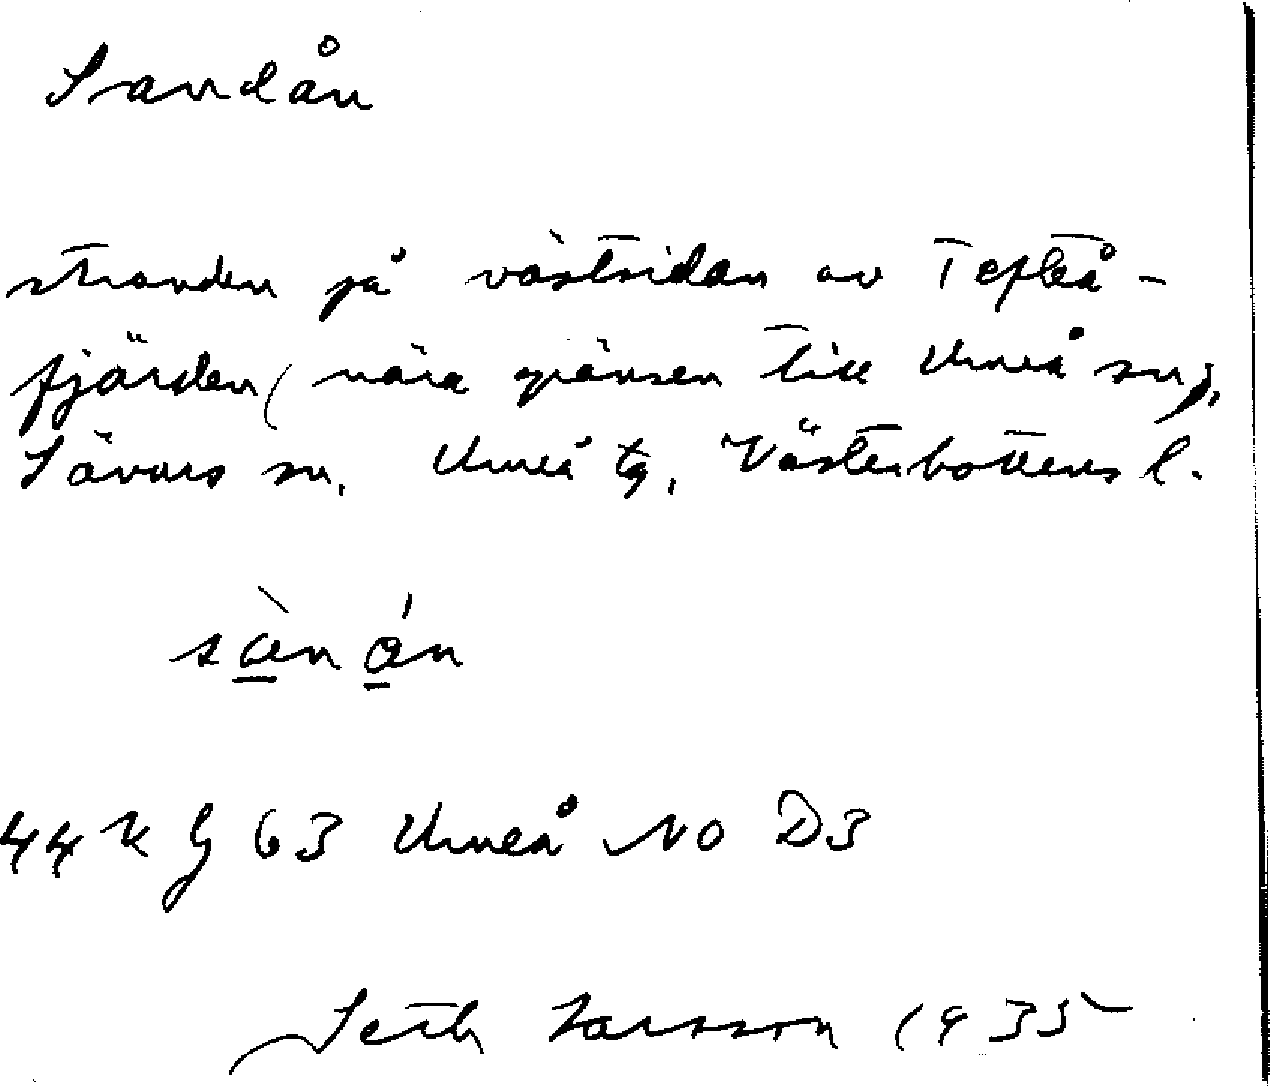 Sandån
stranden på västsidan av Tefteå-
fjärden (nära gränsen till Umeå sn),
Sävars sn, Umeå tg, Västerbottens l.
sànán
44 k G 63 Umeå NO D3
Seth Larsson 1935